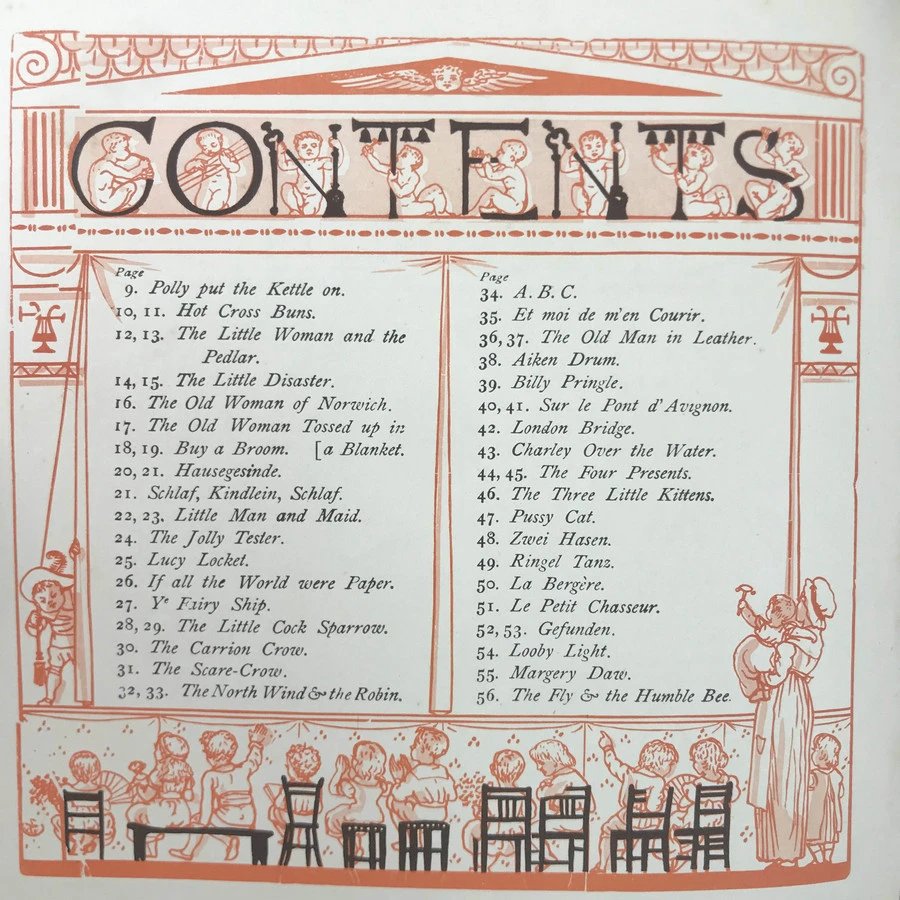 CONTENTS
Page
9. Polly put the Kettle on.
10, 11. Hot Cross Buns.
12, 13. The Little Woman and the
Pedlar.
14, 15. The Little Disaster.
16. The Old Woman of Norwich.
17. The Old Woman Tossed up in
18, 19. Buy a Broom. [a Blanket.
20, 21. Hausegesinde.
21. Schlaf, Kindlein, Schlaf.
22, 23. Little Man and Maid.
24. The Jolly Tester.
25. Lucy Locket.
26. If all the World were Paper.
27. Ye Fairy Ship.
28, 29. The Little Cock Sparrow.
30. The Carrion Crow.
31. The Scare-Crow.
32, 33. The North Wind & the Robin.
Page
34. A. B. C.
35. Et moi de m'en Courir.
36, 37. The Old Man in Leather.
38. Aiken Drum.
39. Billy Pringle.
40, 41. Sur le Pont d'Avignon.
42. London Bridge.
43. Charley Over the Water.
44, 45. The Four Presents.
46. The Three Little Kittens.
47. Pussy Cat.
48. Zwei Hasen.
49. Ringel Tanz.
50. La Bergère.
51. Le Petit Chasseur.
52, 53. Gefunden.
54. Looby Light.
55. Margery Daw.
56. The Fly & the Humble Bee.